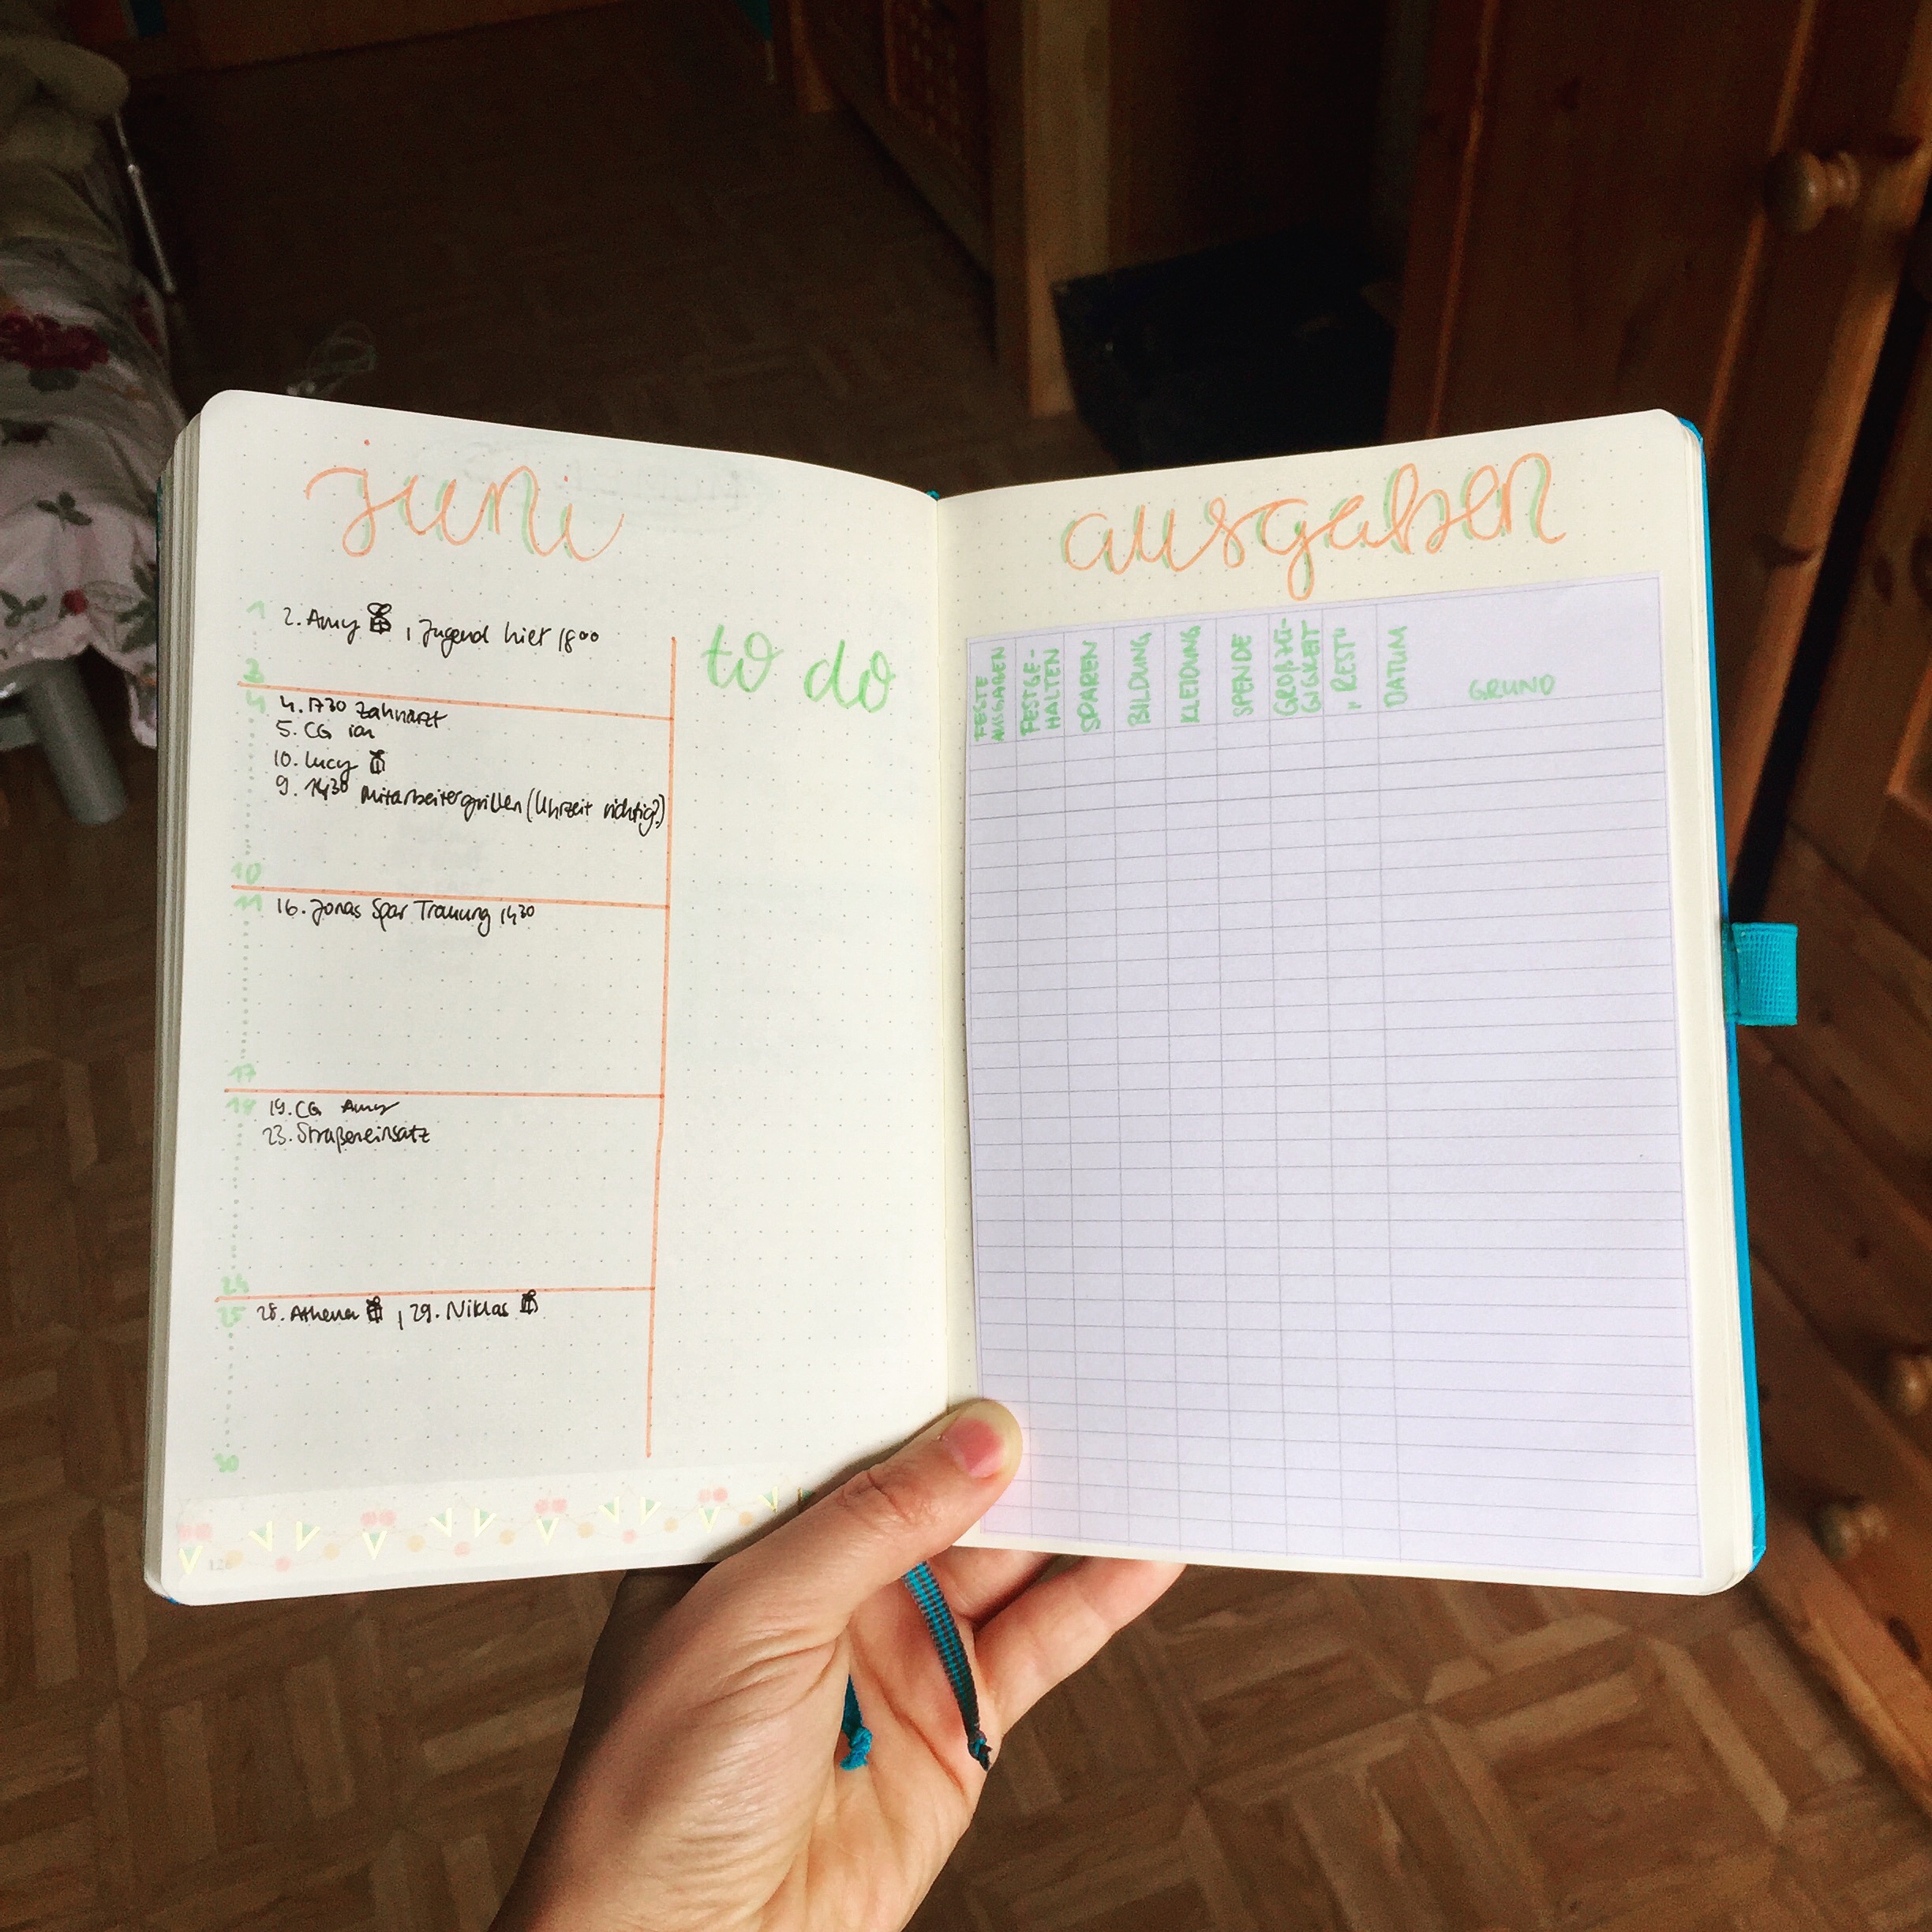 juni
1
2. Amy , Jugend hier 18⁰⁰
3
4
4. 17³⁰ Zahnarzt
5. CG
10. Lucy
9. 14³⁰ Mitarbeitergrillen (Uhrzeit richtig?)
10
11
16. Jonas Spar Trauung 14³⁰
17
18
19. CG Amy
23. Straßeneinsatz
24
25
28. Athena , 29. Niklas
30
126
to do
ausgaben
FESTE
AUSGABEN
FESTGE-
HALTEN
SPAREN
BILDUNG
KLEIDUNG
SPENDE
GROßZÜ-
GIGKEIT
„REST"
DATUM
GRUND